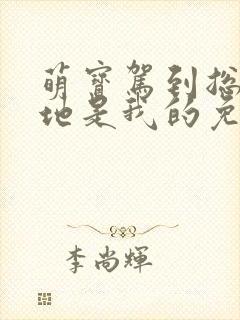 萌寶駕到總
地是我的免
李尚輝